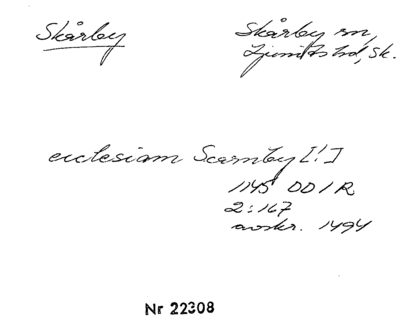 Skårby
Skårby sn,
Ljunits hd, Sk.
ecclesiam Scarmby [!]
1145 DD 1 R
2:167
avskr. 1494
Nr 22308